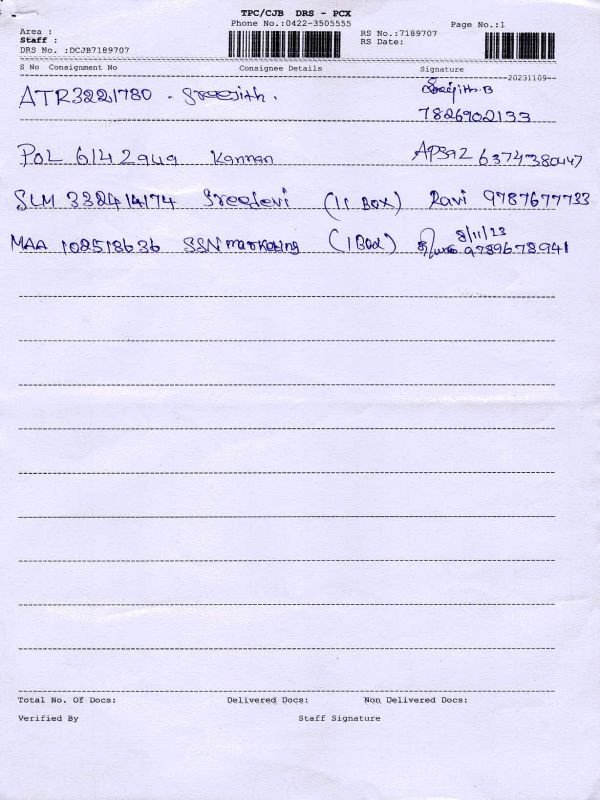 TPC/CJB DRS - PCX
Phone No.:0422-3505555
Page No.:1
Area :
Staff :
DRS No. :DCJB7189707
RS No.:7189707
RS Date:
S No Consignment No Consignee Details Signature
20231109
ATR3221780 - Sreejith. Sreejith.B
7826902133
POL 6142949 Kannan 6374380447
SLM 332414174 Sreedevi (11 Box) Ravi 9787677733
MAA 102518636 SSN marketing (1 Box) 8/11/23
9789678941
Total No. Of Docs: Delivered Docs: Non Delivered Docs:
Verified By Staff Signature